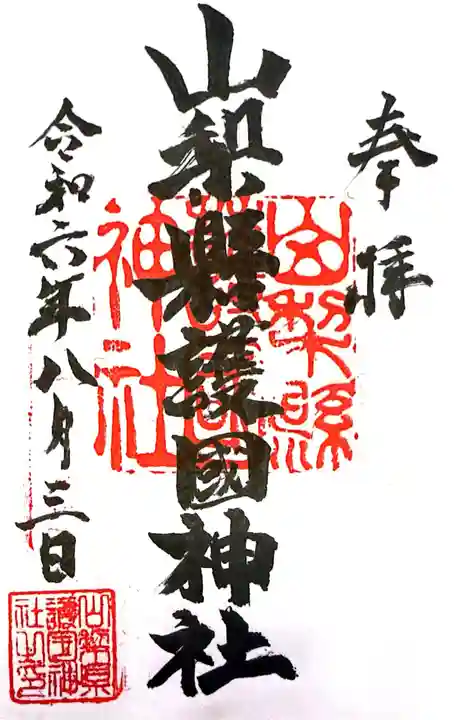 奉拝
山梨縣護國神社
山梨縣護國神社
令和六年八月三日
山梨県護国神社之印